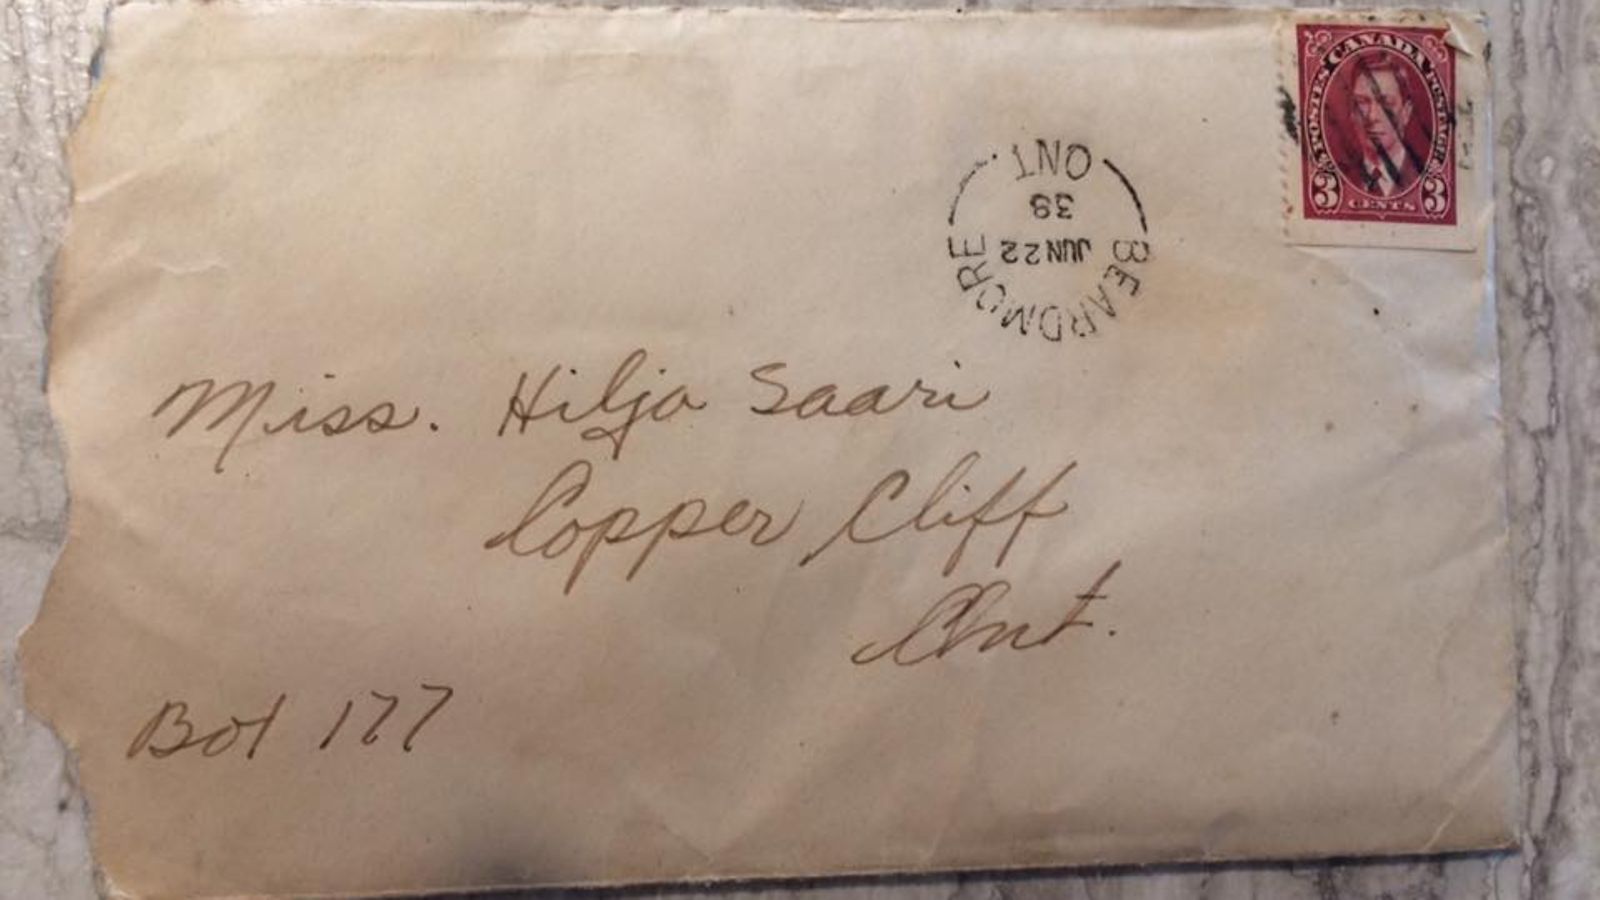 POSTES CANADA POSTAGE
3 CENTS 3
BEARDMORE
JUN 22
38
ONT
Miss. Hilja Saari
Copper Cliff
Ont.
Box 177